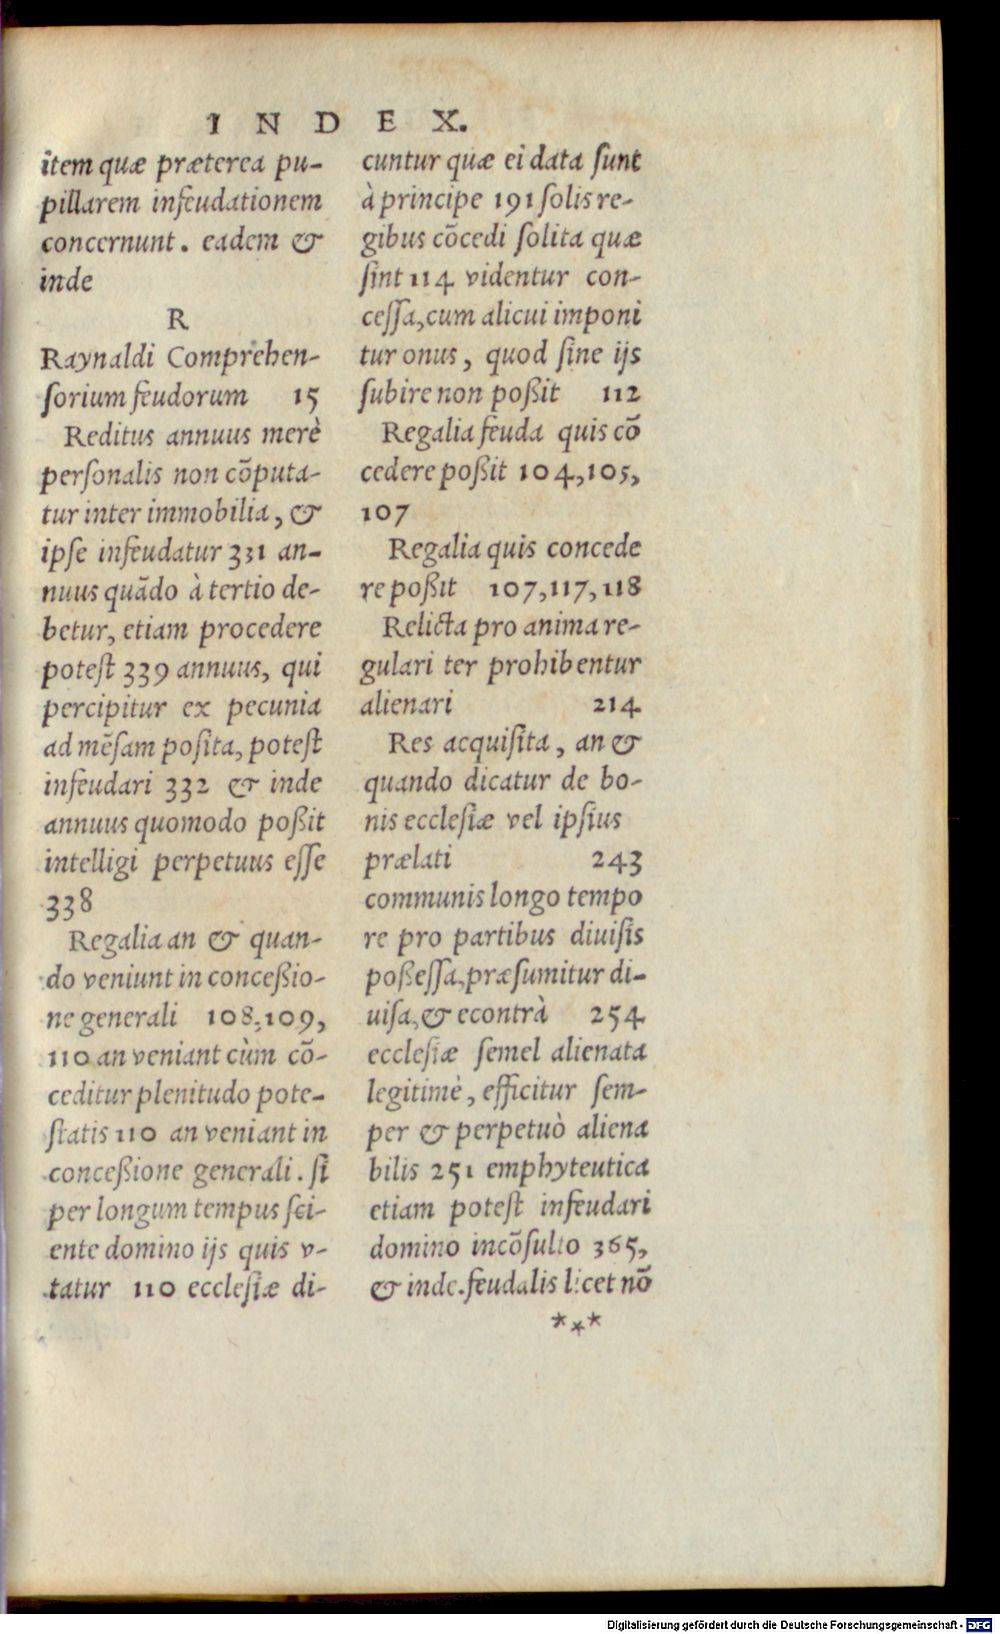 INDEX.
item quæ præterea pu-
pillarem infeudationem
concernunt. eadem &
inde
R
Raynaldi Comprehen-
ſorium feudorum 15
Reditus annuus merè
perſonalis non cõputa-
tur inter immobilia, &
ipſe infeudatur 331 an-
nuus quãdo à tertio de-
betur, etiam procedere
poteſt 339 annuus, qui
percipitur ex pecunia
ad mẽſam poſita, poteſt
infeudari 332 & inde
annuus quomodo poßit
intelligi perpetuus eſſe
338
Regalia an & quan-
do veniunt in conceßio-
ne generali 108, 109,
110 an veniant cùm cõ-
ceditur plenitudo pote-
ſtatis 110 an veniant in
conceßione generali. ſi
per longum tempus ſci-
ente domino ijs quis v-
tatur 110 eccleſiæ di-
cuntur quæ ei data ſunt
à principe 191 ſolis re-
gibus cõcedi ſolita quæ
ſint 114 videntur con-
ceſſa, cum alicui imponi
tur onus, quod ſine ijs
ſubire non poßit 112
Regalia feuda quis cõ
cedere poßit 104, 105,
107
Regalia quis concede
re poßit 107, 117, 118
Relicta pro anima re-
gulari ter prohibentur
alienari 214
Res acquiſita, an &
quando dicatur de bo-
nis eccleſiæ vel ipſius
prælati 243
communis longo tempo
re pro partibus diuiſis
poßeſſa, præſumitur di-
uiſa, & econtrà 254
eccleſiæ ſemel alienata
legitimè, efficitur ſem-
per & perpetuò aliena
bilis 251 emphyteutica
etiam poteſt infeudari
domino incõſulto 365,
& inde. feudalis licet nõ
***
Digitalisierung gefördert durch die Deutsche Forschungsgemeinschaft - DFG